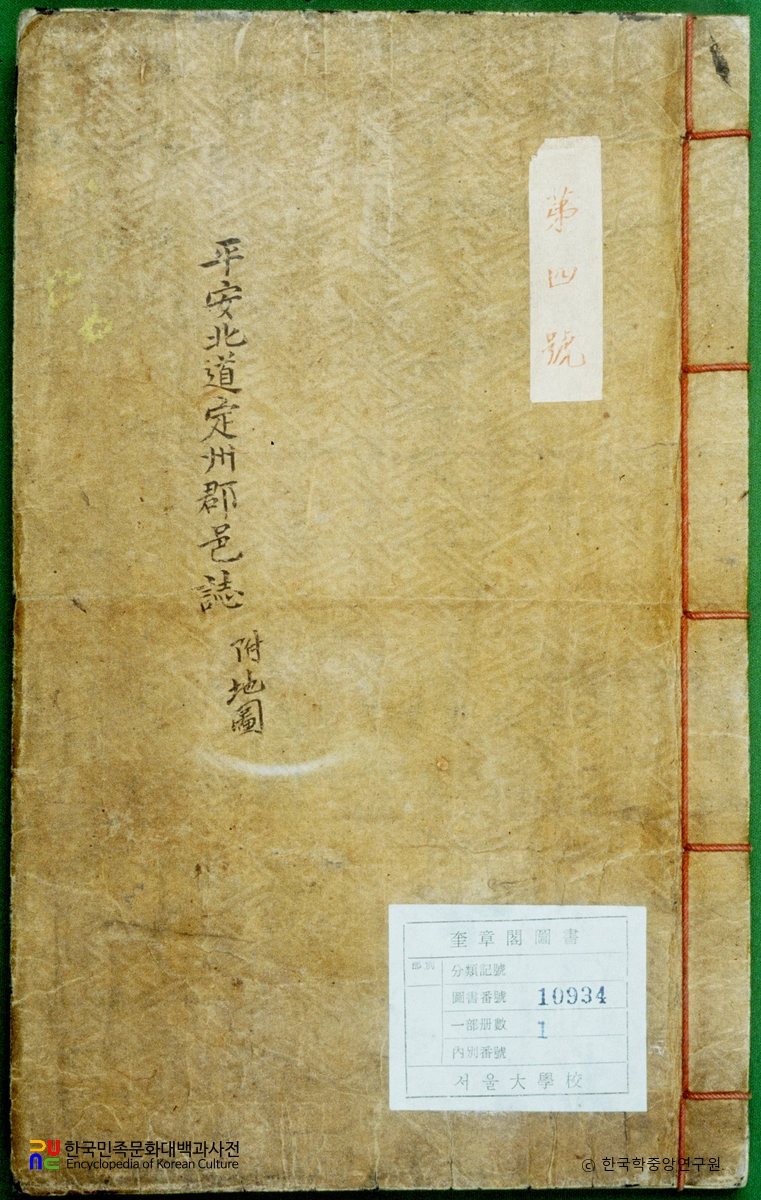 第四號
平安北道定州郡邑誌
附地圖
奎章閣圖書
部別
分類記號
圖書番號 10934
一部册數 1
內別番號
서울大學校
한국민족문화대백과사전
Encyclopedia of Korean Culture
© 한국학중앙연구원